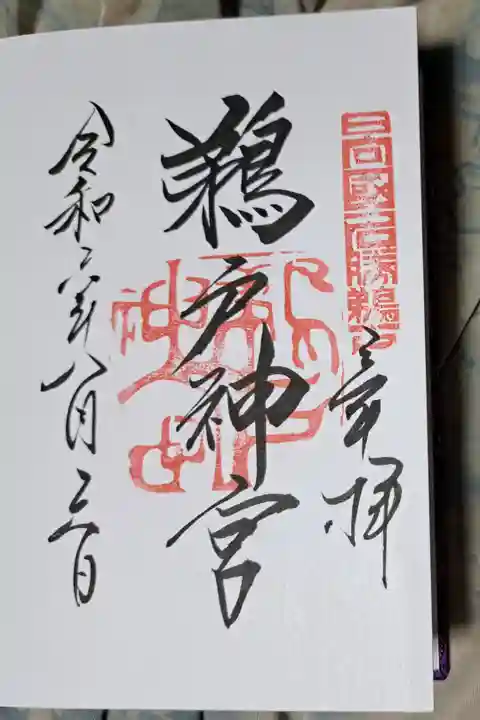 三日向國吉勝鵜戸
奉拝
鵜戸神宮
令和六年八月三日